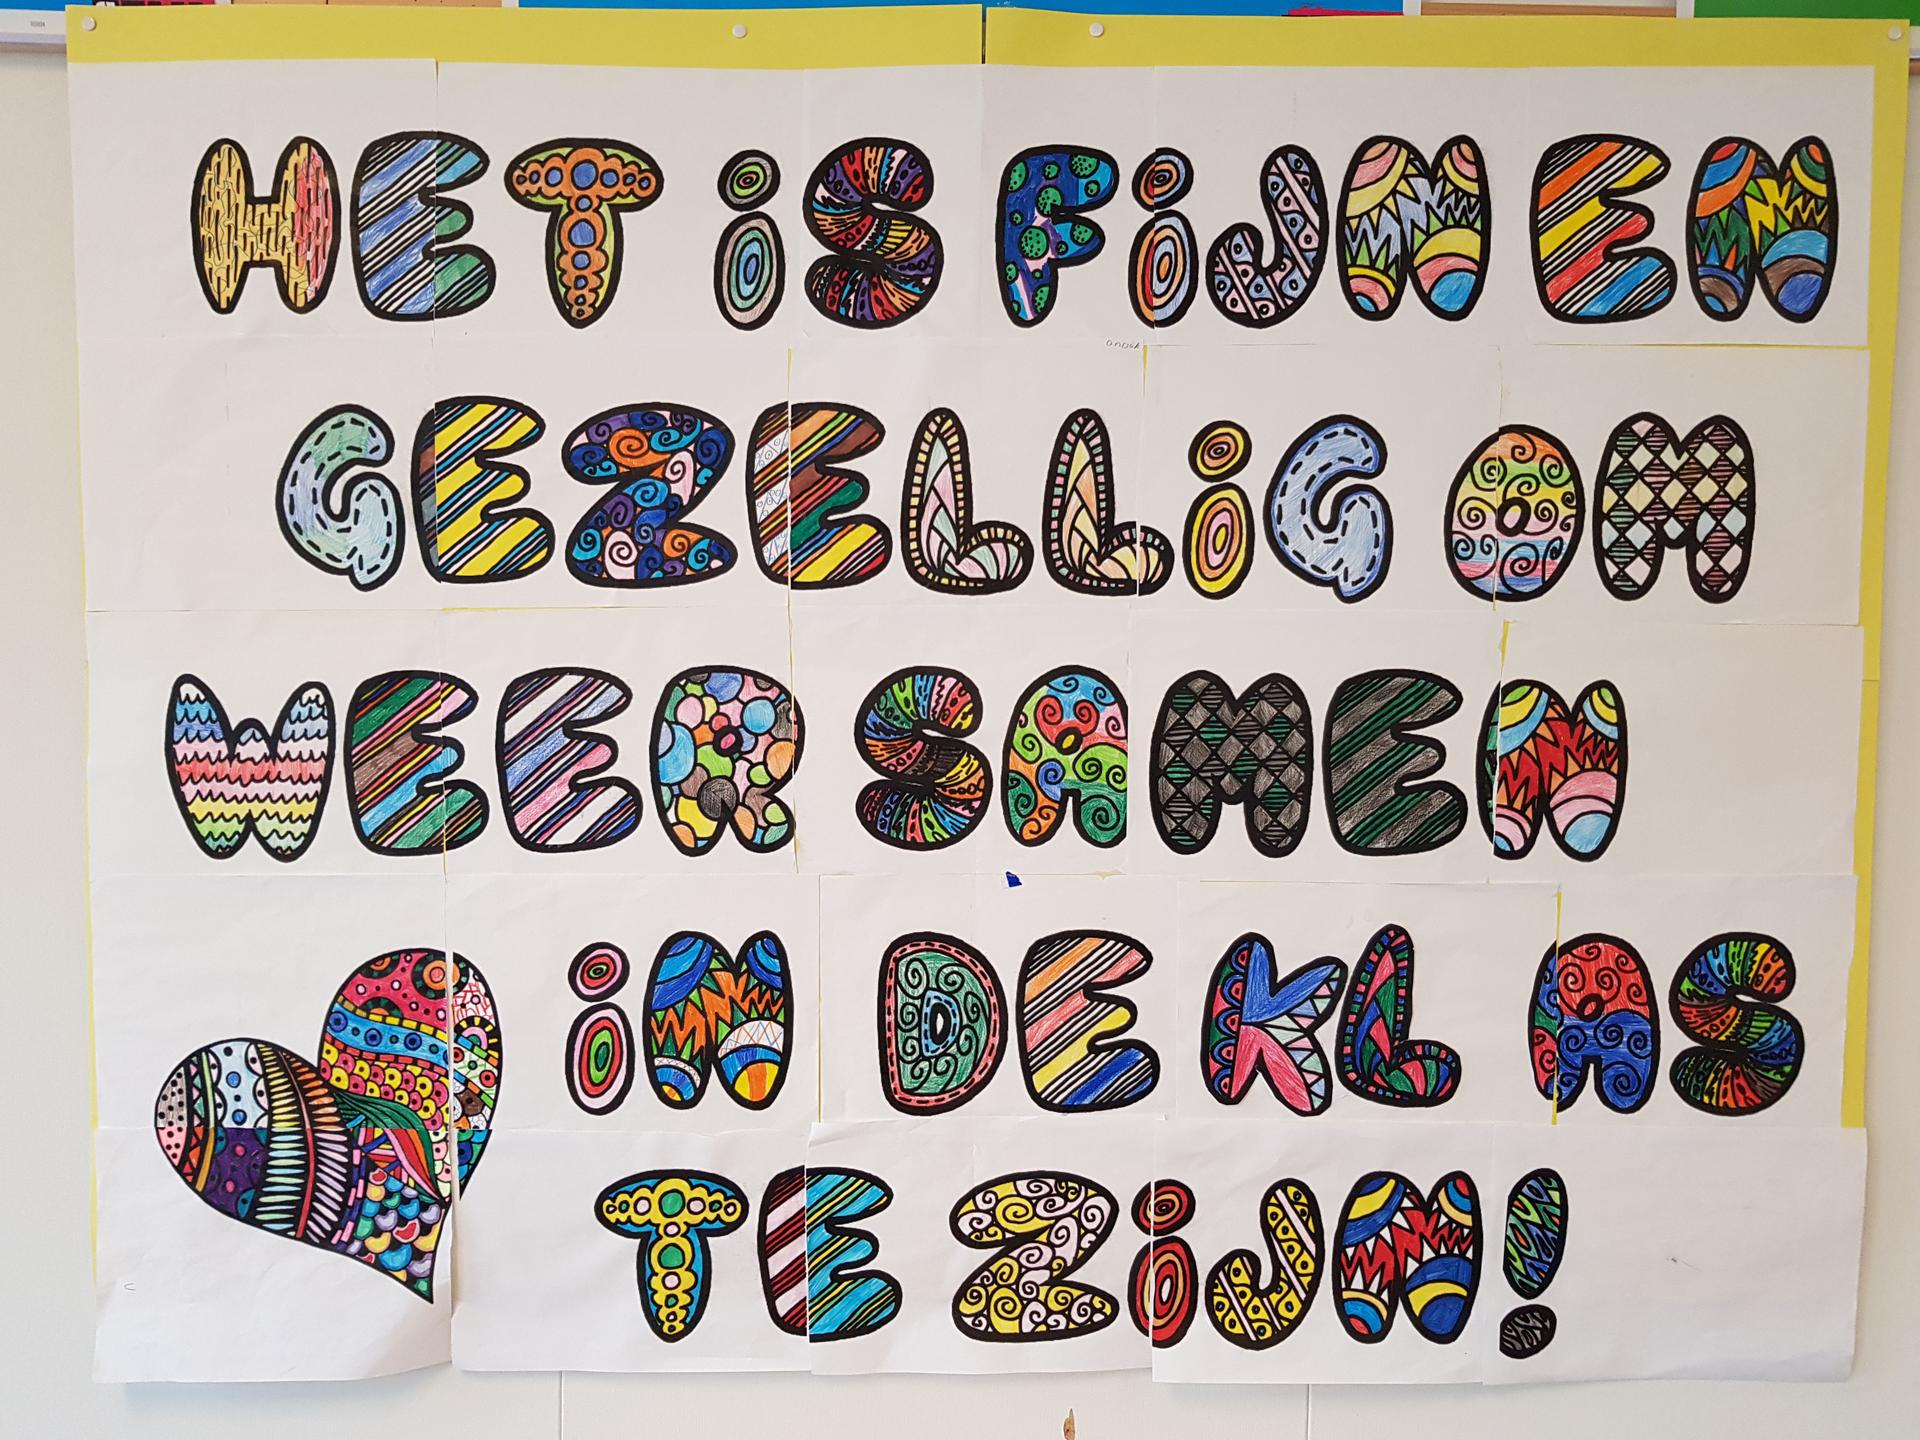 HET iS FiJN EN
GEZELLiG OM
WEER SAMEN
iN DE KLAS
TE ZiJN!